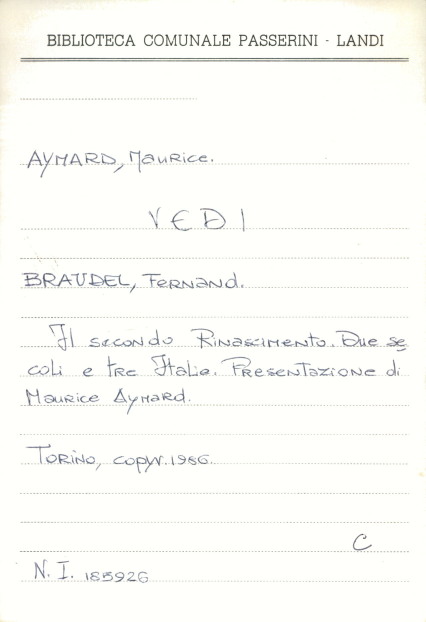 BIBLIOTECA COMUNALE PASSERINI - LANDI
AYMARD, Maurice.
VEDI
BRAUDEL, Fernand.
Il secondo Rinascimento. Due se
coli e tre Italie. Presentazione di
Maurice Aymard.
Torino, copyr. 1986.
C
N. I. 185926